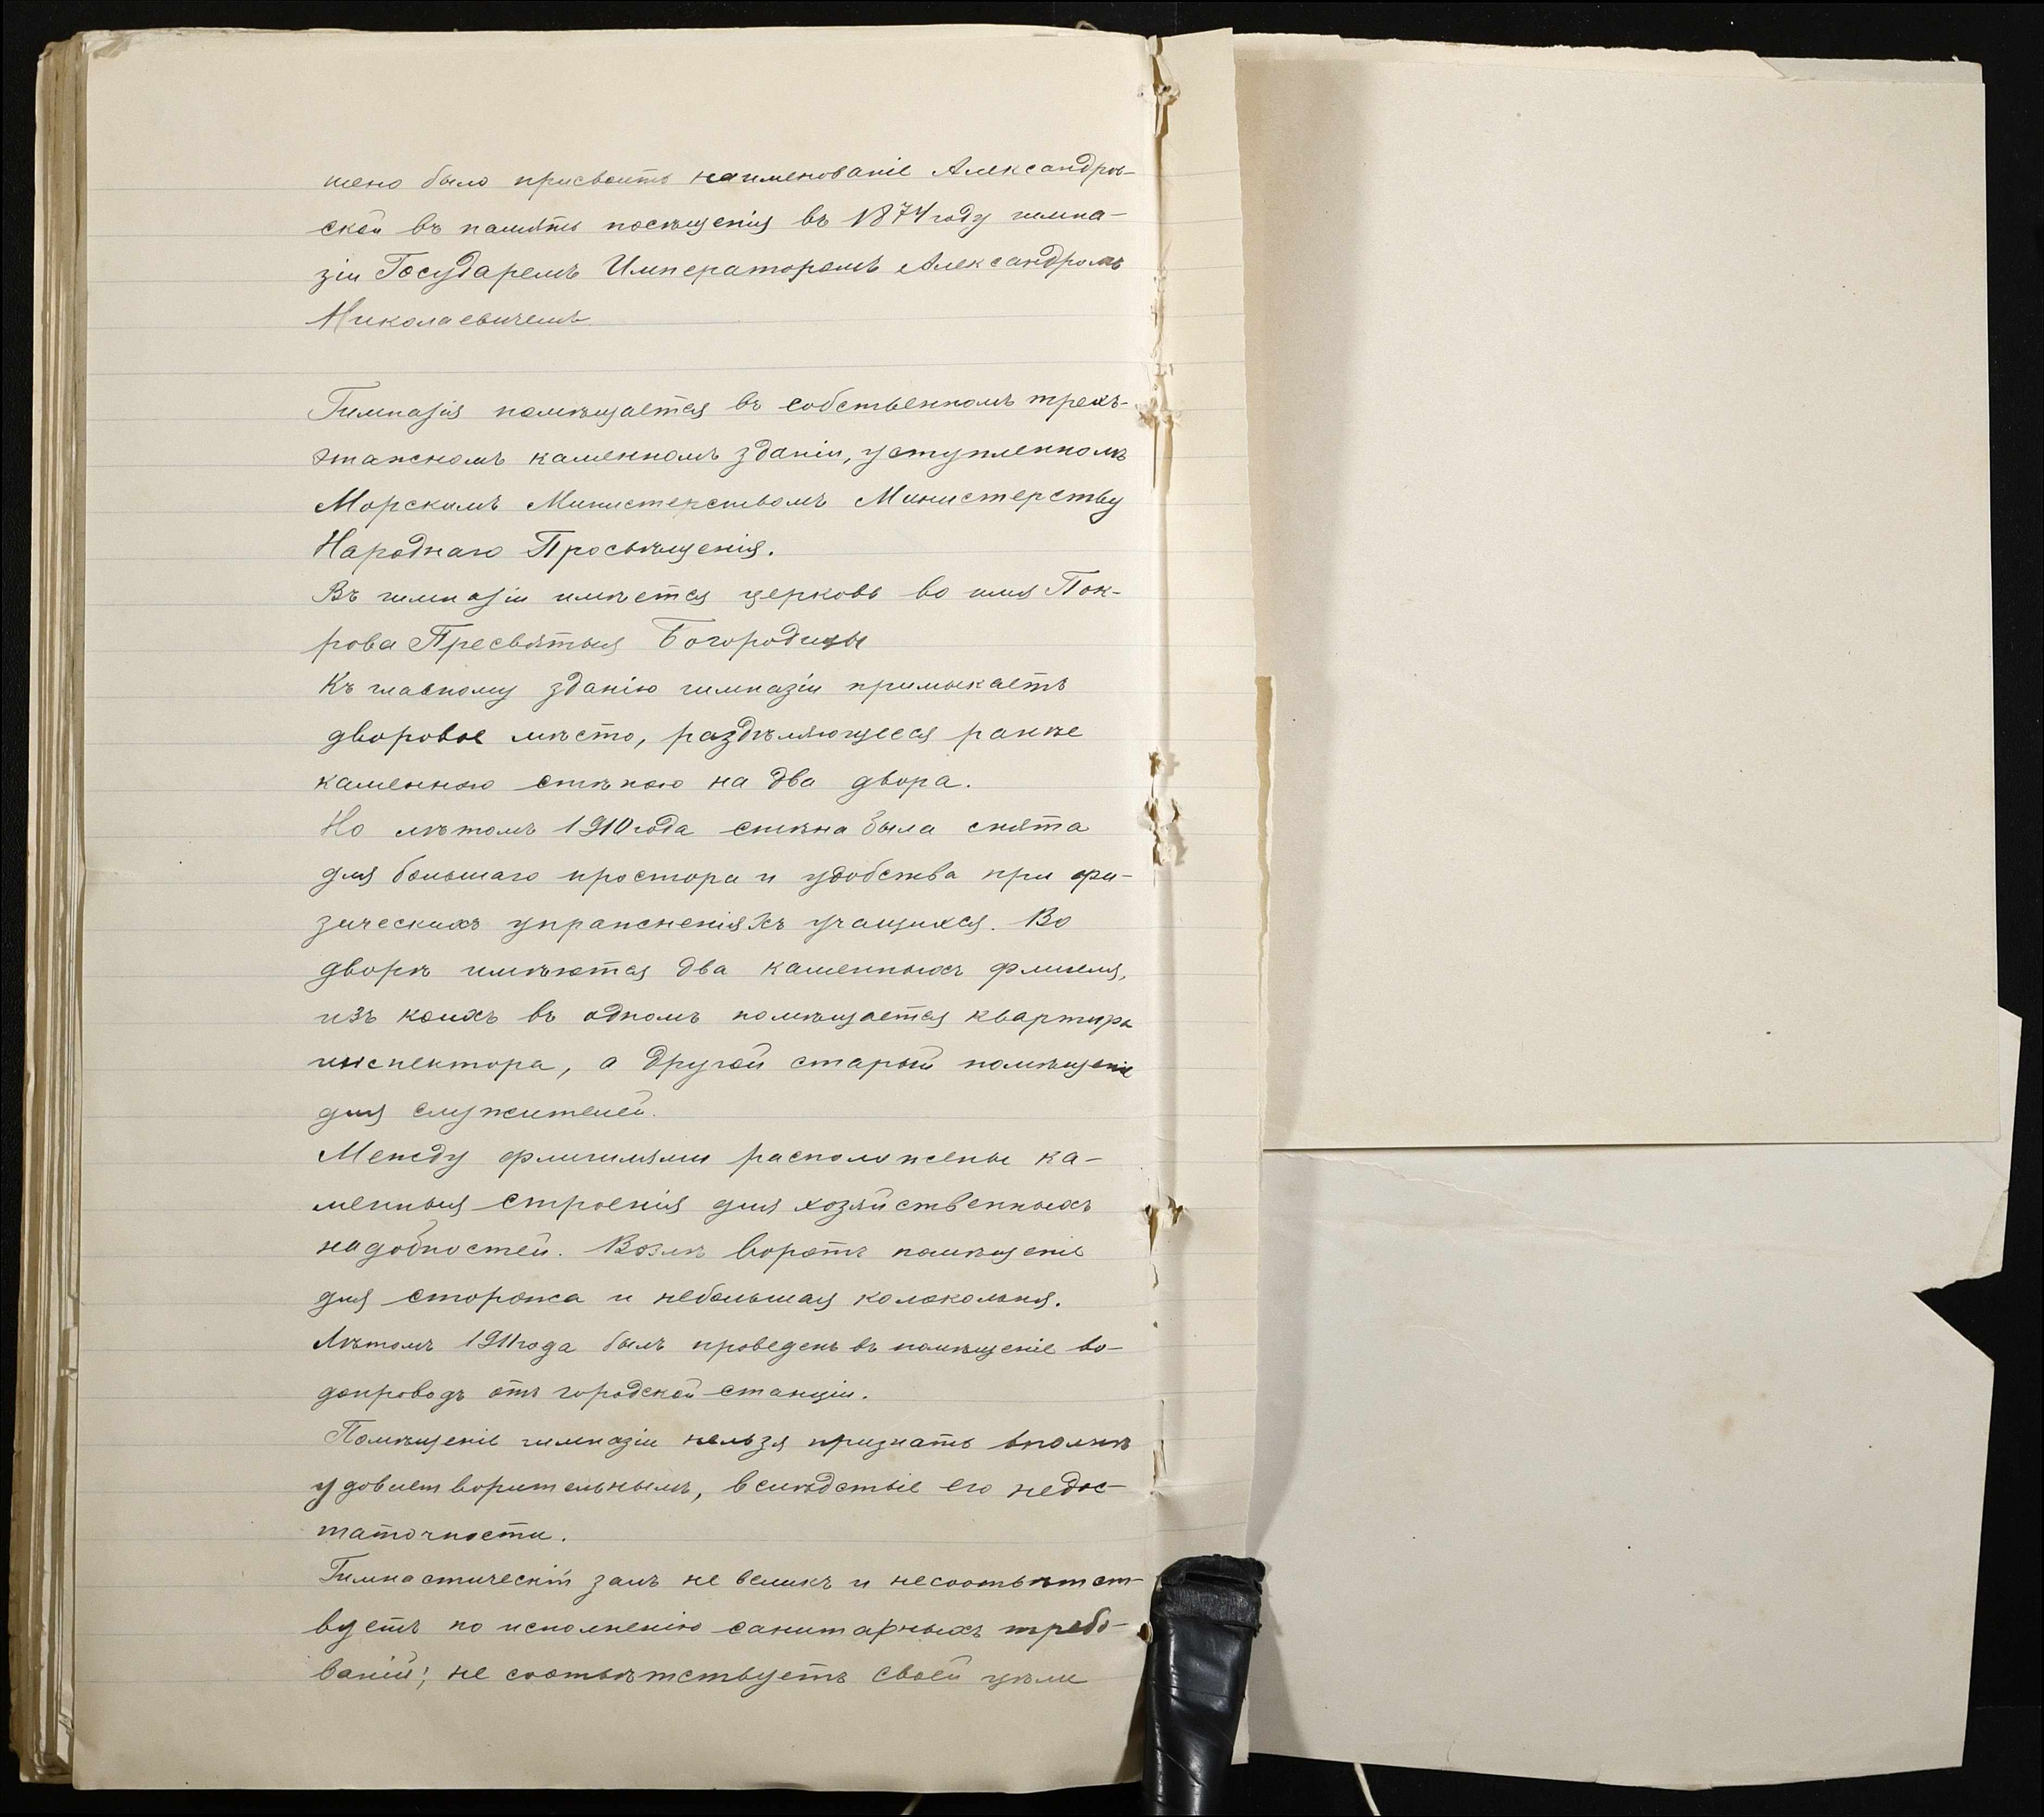 шено было присвоить наименованіе Александров-
ской въ память посѣщенія въ 1874 году гимна-
зіи Государемъ Императоромъ Александромъ
Николаевичемъ
Гимназія помѣщается въ собственномъ трехъ-
этажномъ каменномъ зданіи, уступленномъ
Морскимъ Министерствомъ Министерству
Народнаго Просвѣщенія.
Въ гимназіи имѣется церковь во имя Пок-
рова Пресвятыя Богородицы
Къ главному зданію гимназіи примыкаетъ
дворовое мѣсто, раздѣляющееся ранѣе
каменною стѣною на два двора.
Но лѣтомъ 1910 года стѣна была снята
для большаго простора и удобства при фи-
зическихъ упражненіяхъ учащихся. Во
дворѣ имѣются два каменныхъ флигеля,
изъ коихъ въ одномъ помѣщается квартира
инспектора, а другой старый помѣщеніе
для служителей.
Между флигилями расположены ка-
менныя строенія для хозяйственныхъ
надобностей. Возлѣ воротъ помѣщеніе
для сторожа и небольшая колокольня.
Лѣтомъ 1911 года былъ проведенъ въ помѣщеніе во-
допроводъ отъ городской станціи.
Помѣщеніе гимназіи нельзя признать вполнѣ
удовлетворительнымъ, вслѣдствіе его недос-
таточности.
Гимнастическій залъ не великъ и несоотвѣтст-
вуетъ по исполненію санитарныхъ требо-
ваній; не соотвѣтствуетъ своей цѣли